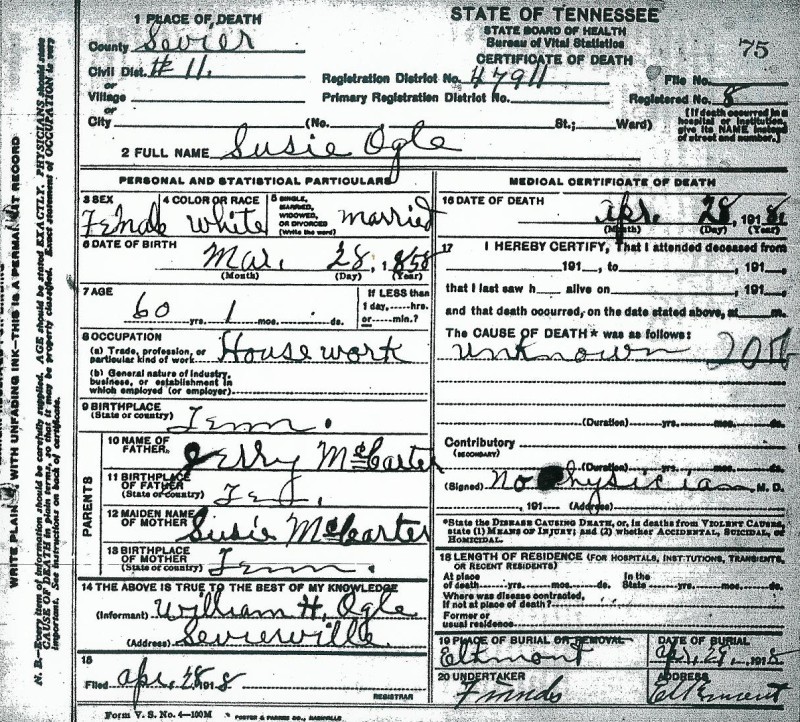 STATE OF TENNESSEE
STATE BOARD OF HEALTH
Bureau of Vital Statistics
CERTIFICATE OF DEATH
75
1 PLACE OF DEATH
County Sevier
Civil Dist. # 11.
or
Village
or
City (No. St.; Ward)
Registration District No. 47911 File No.
Primary Registration District No. Registered No. 8
[If death occurred in a
hospital or institution,
give its NAME instead
of street and number.]
2 FULL NAME Susie Ogle
PERSONAL AND STATISTICAL PARTICULARS
3 SEX Female
4 COLOR OR RACE white
5 SINGLE,
MARRIED,
WIDOWED,
OR DIVORCED
(Write the word) married
6 DATE OF BIRTH
Mar. 28, 1858
(Month) (Day) (Year)
7 AGE
60 yrs. 1 mos. ds.
If LESS than
1 day, hrs.
or min.?
8 OCCUPATION
(a) Trade, profession, or
particular kind of work Housework
(b) General nature of industry,
business, or establishment in
which employed (or employer)
9 BIRTHPLACE
(State or country) Tenn.
PARENTS
10 NAME OF
FATHER. Jerry McCarter
11 BIRTHPLACE
OF FATHER
(State or country)
12 MAIDEN NAME
OF MOTHER Susie McCarter
13 BIRTHPLACE
OF MOTHER
(State or country) Tenn.
14 THE ABOVE IS TRUE TO THE BEST OF MY KNOWLEDGE
(Informant) William H. Ogle
(Address) Sevierville.
15
Filed Apr. 28 1918
REGISTRAR
Form V. S. No. 4—100M
MEDICAL CERTIFICATE OF DEATH
16 DATE OF DEATH
Apr. 28, 1918.
(Month) (Day) (Year)
17 I HEREBY CERTIFY, That I attended deceased from
191 , to , 191 ,
that I last saw h alive on , 191 ,
and that death occurred, on the date stated above, at m.
The CAUSE OF DEATH* was as follows:
unknown
(Duration) yrs. mos. ds.
Contributory
(SECONDARY)
(Duration) yrs. mos. ds.
(Signed) No Physician M.D.
, 191 (Address)
*State the DISEASE CAUSING DEATH, or, in deaths from VIOLENT CAUSES,
state (1) MEANS OF INJURY; and (2) whether ACCIDENTAL, SUICIDAL, or
HOMICIDAL.
18 LENGTH OF RESIDENCE (FOR HOSPITALS, INSTITUTIONS, TRANSIENTS,
OR RECENT RESIDENTS)
At place In the
of death yrs. mos. ds. State yrs. mos. ds.
Where was disease contracted,
if not at place of death?
Former or
usual residence
19 PLACE OF BURIAL OR REMOVAL
Elkmont
DATE OF BURIAL
Apr. 29, 1918
20 UNDERTAKER
Friends
ADDRESS
Elkmont
WRITE PLAINLY WITH UNFADING INK—THIS IS A PERMANENT RECORD
N. B.—Every item of information should be carefully supplied. AGE should be stated EXACTLY. PHYSICIANS should state
CAUSE OF DEATH in plain terms, so that it may be properly classified. Exact statement of OCCUPATION is very
important. See instructions on back of certificate.